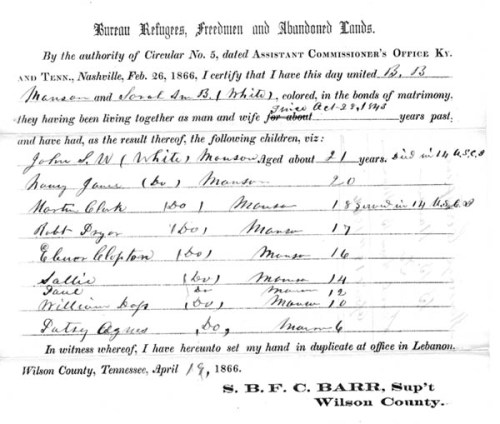 Bureau Refugees, Freedmen and Abandoned Lands.
By the authority of Circular No. 5, dated ASSISTANT COMMISSIONER'S OFFICE KY.
AND TENN., Nashville, Feb. 26, 1866, I certify that I have this day united B. B
Manson and Sarah An B. (White), colored, in the bonds of matrimony.
since Oct. 28, 1843
they having been living together as man and wife for about years past
and have had, as the result thereof, the following children, viz:
John S. W (White) Manson Aged about 21 years. Died in 14 U.S.C.I
Nancy Jane (Do) Manson 20
Martin Clark (Do) Manson 18 Served in 14 U.S.C.I
Robt Pryor (Do) Manson 17
Elenor Clopton (Do) Manson 16
Sallie (Do) Manson 14
Do Manson 12
William (Do) Manson 10
Patsy Agnes (Do) Manson 6
In witness whereof, I have hereunto set my hand in duplicate at office in Lebanon.
Wilson County, Tennessee, April 19, 1866.
S. B. F. C. BARR, Sup't
Wilson County.